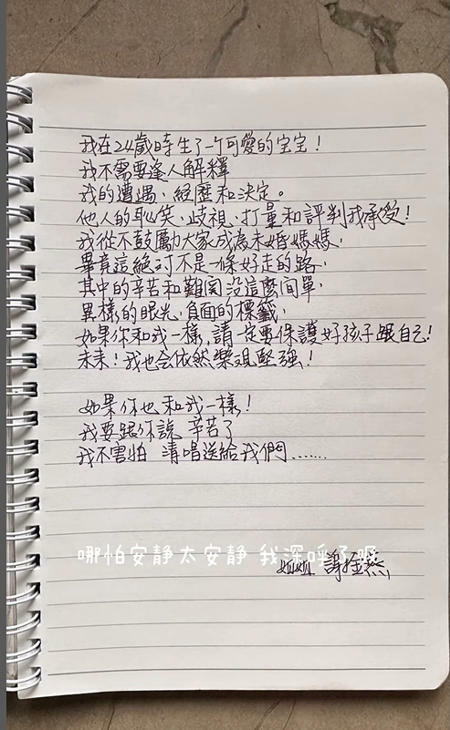 我在24歲時生了一个可愛的宝宝！
我不需要逢人解釋
我的遭遇、經歷和決定。
他人的恥笑、歧視、打量和評判我承受！
我從不鼓勵大家成為未婚媽媽，
畢竟這絕对不是一條好走的路，
其中的辛苦和難関沒這麼简單，
異樣的眼光、負面的標籤，
如果你和我一樣，請一定要保護好孩子跟自己！
未來！我也会依然樂观堅強！
如果你也和我一樣！
我要跟你說 辛苦了
我不害怕 清唱送給我們.......
哪怕安靜太安靜 我深呼了
姐姐 謝